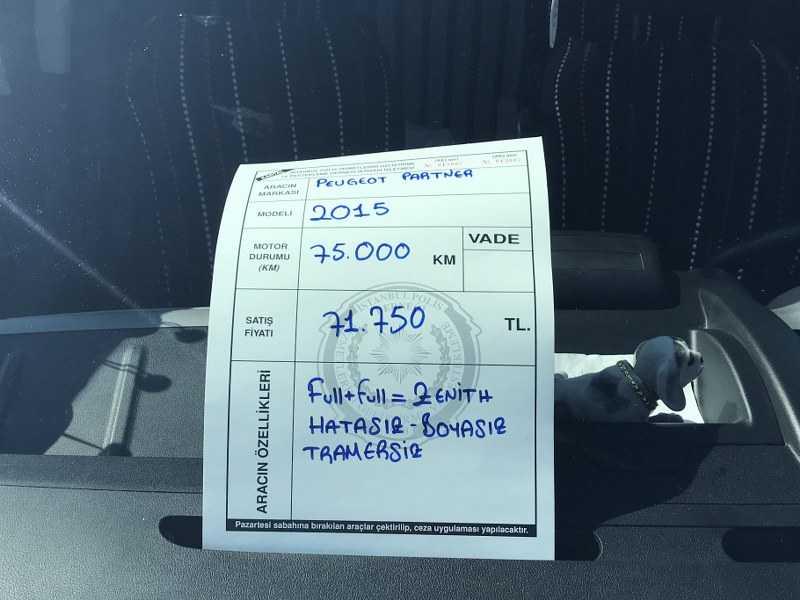 ARACIN MARKASI PEUGEOT PARTNER
MODELİ 2015
MOTOR DURUMU (KM) 75.000 KM VADE
SATIŞ FİYATI 71.750 TL.
İSTANBUL POLİS
ARACIN ÖZELLİKLERİ
Full+Full = ZENİTH
HATASIZ - BOYASIZ
TRAMERSİZ
Pazartesi sabahına bırakılan araçlar çektirilip, ceza uygulaması yapılacaktır.